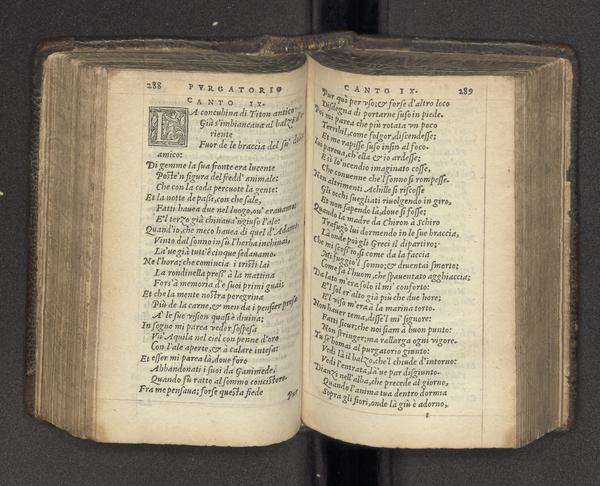 288 PVRGATORIO
CANTO IX.
LA concubina di Titon antico
Già s'imbiancaua al balzo d'o
riente
Fuor de le braccia del suo dolce
amico:
Di gemme la sua fronte era lucente
Poste'n figura del fredd'animale:
Che con la coda percuote la gente:
Et la notte de passi, con che sale,
Fatti hauea due nel luogo, ou'erauamo;
E'l terzo già chinaua'ngiuso l'ale:
Quand'io, che meco hauea di quel d'Adamo,
Vinto dal sonno in sù l'herba inchinai,
La'ue già tutt'e cinque sedauamo.
Ne l'hora; che comincia i tristi lai
La rondinella press'à la mattina
Fors'à memoria de suoi primi guai;
Et che la mente nostra peregrina
Più de la carne, & men da i pensier presa
A le sue vision quasi è diuina;
In sogno mi parea veder sospesa
Vn'Aquila nel ciel con penne d'oro
Con l'ale aperte, & à calare intesa:
Et esser mi parea là, doue foro
Abbandonati i suoi da Ganimede,
Quando fù ratto al sommo concistoro.
Fra me pensaua; forse questa fiede
Pur
CANTO IX. 289
Pur quà per vso; & forse d'altro loco
Disdegna di portarne suso in piede.
Poi mi parea che più rotata vn poco
Terribil, come folgor, discendesse;
Et me rapisse suso insin al foco.
Iui pareua, ch'ella & io ardesse;
Et sì lo'ncendio imaginato cosse,
Che conuenne che'l sonno si rompesse.
Non altrimenti Achille si riscosse
Gli occhi suegliati riuolgendo in giro,
Et non sapendo là, doue si fosse;
Quando la madre da Chiron à Schiro
Trafugò lui dormendo in le sue braccia,
Là onde poi gli Greci il dipartiro;
Che mi scoss'io, sì come da la faccia
Mi fuggìo'l sonno; & diuentai smorto;
Come fà l'huom, che spauentato agghiaccia;
Da lato m'era solo il mi' conforto:
E'l sol er'alto già più che due hore;
E'l viso m'era à la marina torto.
Non hauer tema, disse'l mi' signore:
Fatti sicur; che noi siam à buon punto:
Non stringer; ma rallarga ogni vigore.
Tu se'homai al purgatorio giunto:
Vedi là il balzo, che'l chiude d'intorno:
Vedi l'entrata, là'ue par disgiunto.
Dianzi nell'alba, che precede al giorno,
Quando l'anima tua dentro dormia
Sopra gli fiori, onde là giù è adorno,